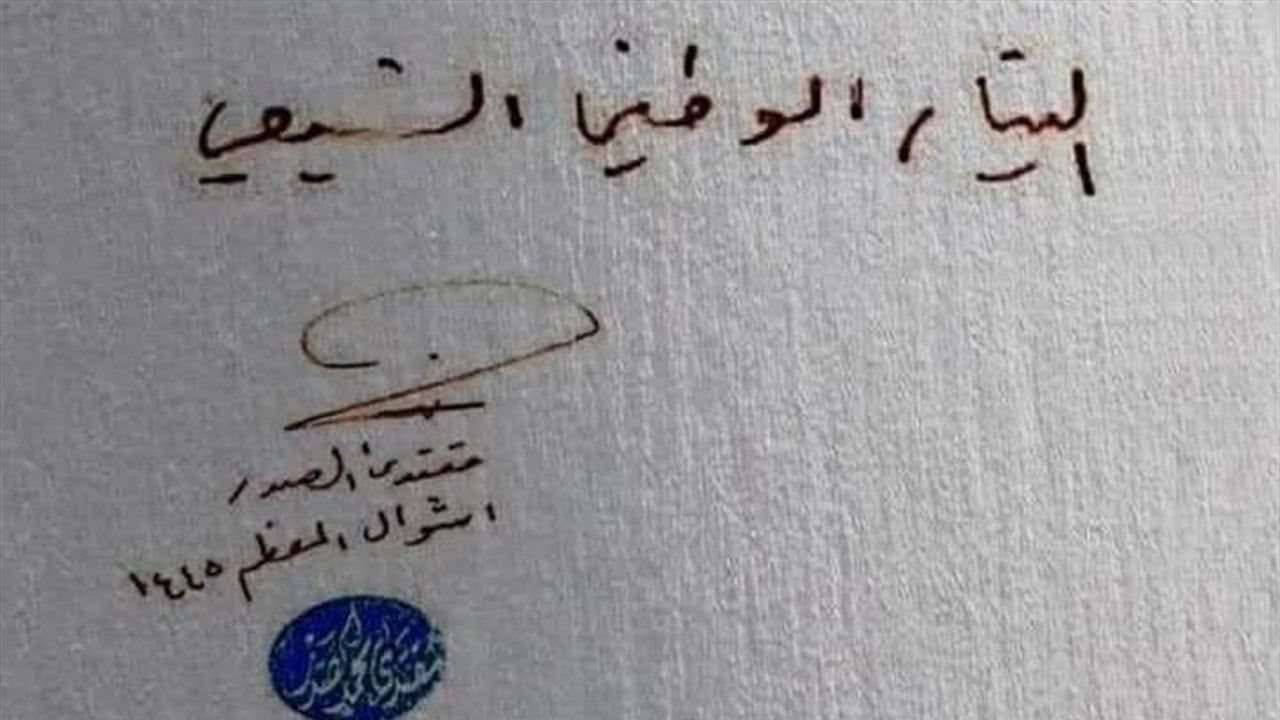 التيار الوطني الشيعي
مقتدى الصدر
١ شوال المعظم ١٤٤٥
مقتدى الصدر